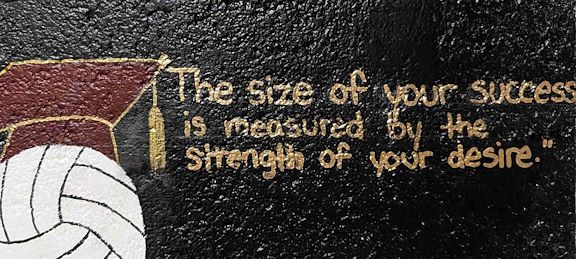 The size of your success
is measured by the
strength of your desire."